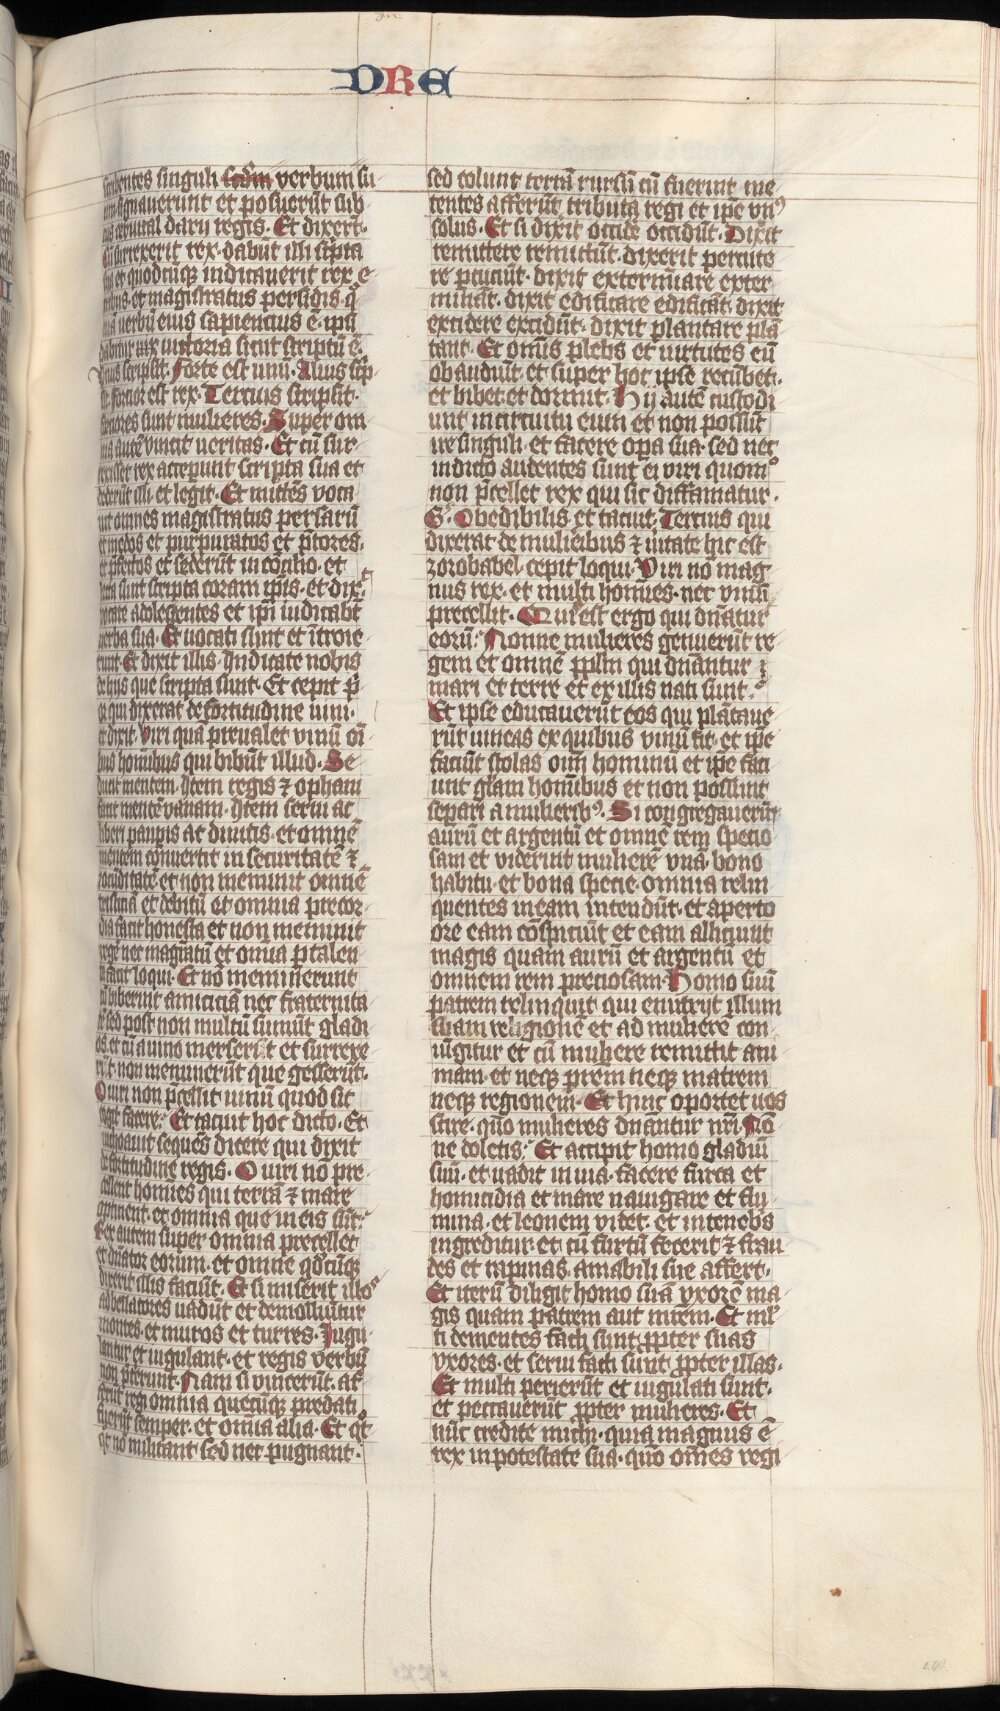 DRE
singuli scdm verbum su
um signauerunt et posuerūt sub
ceruical darij regis. Et dixerūt.
Cū surrexerit rex dabūt illi scripta
et quodcūqꝫ indicauerit rex e
tribus et magistratus persidis qm̄
verbū eius sapiencius ē. ipsi
dabitur victoria sicut scriptū ē.
vnus scripsit. Forte est vinū. Alius scrip
sit fortior est rex. Tercius scripsit.
forciores sunt mulieres. Super om
nia autē vincit ueritas. Et cū sur
rexisset rex acceperunt scripta sua et
dederūt illi. et legit. Et mittēs voca
uit omnes magistratus persarū
et medos et purpuratos et p̄tores.
et p̄fectos et sederūt in cōcilio. et
lecta sunt scripta coram ipsis. et dix̄t
vocate adolescentes et ipi iudicabt
verba sua. Et uocati sunt et ītroie
runt. Et dixit illis. Indicate nobis
de hijs que scripta sunt. Et cepit p̄
or qui dixerat de fortitudine uini.
et dixit. Viri quā preualet vinū oī
bus homībus qui bibūt illud. Se
ducit mentem. Item regis ⁊ orphani
facit mentē vanam. Item serui ac
liberi paupis ac diuitis. et omnē
mentem conuertit in securitatē ⁊
iocūditatē et non meminit omnē
tristiciā et debitū et omnia precor
dia facit honesta et non meminit
regē nec magr̄atū et omīa p talen
ta facit loqui. Et nō meminerunt
cū biberint amiciciā nec fraternita
tē sed post non multū sumūt gladi
os. et cū a uino merserīt et surrexe
rīt. non meminerūt que gesserūt.
O uiri non p̄cellit uinū quod sic
cogit facere. Et tacuit hoc dicto. Et
inchoauit sequēs dicere qui dixit
de fortitudine regis. O uiri nō pre
cellent homīes qui terrā ⁊ mare
optinent. et omnia que in eis sūt.
Rex autem super omnia precellet
et dn̄ator eorum. et omne qdcūqꝫ
dixerit illis faciūt. Et si miserit illos
ad bellatores uadūt et demoliuntur
montes. et muros et turres. Iugu
lantur et iugulant. et regis verbū
non p̄tereunt. Nam si vincerūt. af
ferūt regi omnia quecūqꝫ predati
fuerūt semper. et omīa alia. Et qt
qt nō militant sed nec pugnant.
sed colunt terrā rursū cū fuerint me
tentes afferūt tributa regi et ipe vn9
solus. Et si dixit occide occidūt. Dixit
remittere remittūt. dixerit percute
re ꝑcuciūt. dixit exterminare exter
minātt. dixit edificare edificāt. dixit
excidere excidūt. dixit plantare plā
tant. Et omīs plebs et uirtutes eū
obaudiūt. et super hoc ipse recūbet.
et bibet. et dormit. Hij autē custodi
unt in circuitu eum et non possūt
ire singuli. et facere opa sua. sed nec
in dicto audentes sunt ei viri quomo
non p̄cellet rex qui sic diffamatur.
Obedibilis et tacuit. Tercius qui
dixerat de mulieribus ⁊ uitate hic est
zorobabel cepit loqui. Viri nō mag
nus rex. et multi homīes. nec vinū
precellit. Quis est ergo qui dn̄atur
eorū. Nonne mulieres genuerūt re
gem et omnē pplm qui dn̄antur ⁊
mari et terre et ex illis nati sunt.
Et ipse educauerūt eos qui plātaue
rūt uineas ex quibus vinū fit. et ipe
faciūt stolas oīm hominū et ipe faci
unt glam hom̄ibus et non possunt
separi a mulierib9. Si congregauerūt
aurū et argentū et omnē rem specio
sam et viderint mulierē vnā bono
habitu. et bona specie. omnia relin
quentes in eam intendūt. et aperto
ore eam cōspiciūt et eam alliciunt
magis quam aurū et argentū et
omnem rem preciosam. Homo suū
patrem relinquit qui enutrijt illum
suam regionē et ad mulierē con
iūgitur et cū muliere remittit ani
mam. et neqꝫ p̄rem neqꝫ matrem
neqꝫ regionem. Et hinc oportet uos
scire. quō mulieres dn̄antur nr̄i. Nō
ne doletis. Et accipit homo gladiū
suū. et uadit in uia. facere furta et
homicidia et mare nauigare et flu
mina. et leonem videt. et in tenebs
ingreditur. et cū furtū fecerit ⁊ frau
des et rapinas. amabili sue affert.
Et iterū diligit homo suā vxorē ma
gis quam patrem aut mr̄em. Et ml
ti dementes facti sunt ꝓpter suas
vxores. et serui facti sunt ꝓpter illas.
Et multi perierūt et iugulati sunt.
et peccauerūt ꝓpter mulieres. Et
nūc credite michi. quia magnus ē
rex in potestate sua. quō om̄es regi